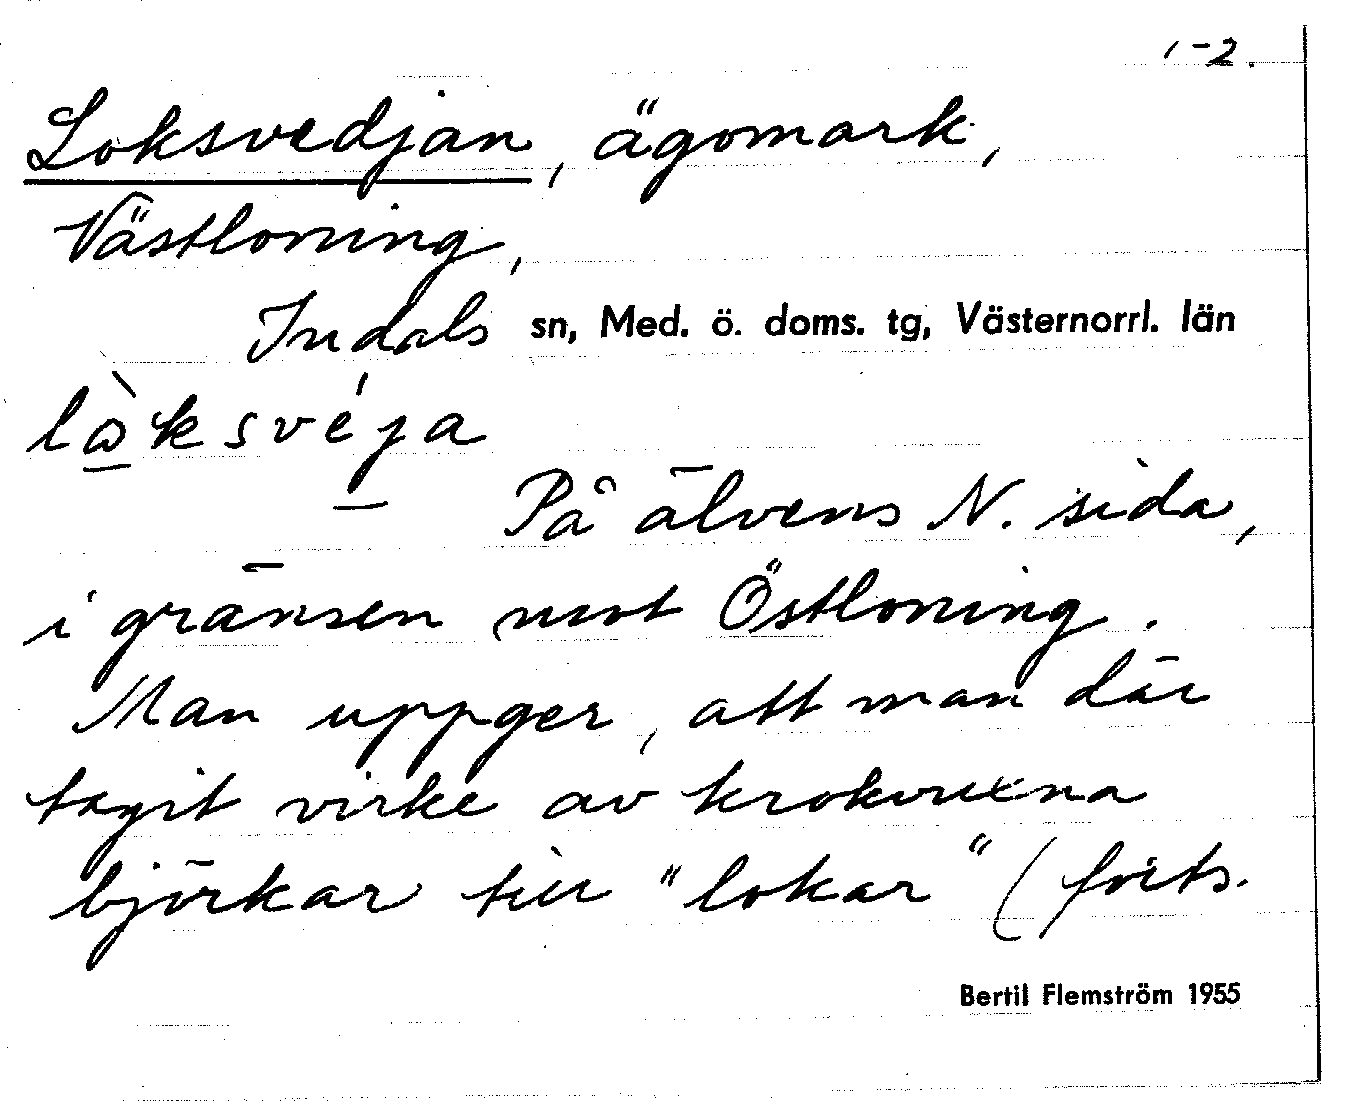 1-2.
Loksvedjan, ägomark,
Västloning,
Indals sn, Med. ö. doms. tg, Västernorrl. län
På älvens N. sida,
i gränsen mot Östloning.
Man uppger, att man där
tagit virke av krokvuxna
björkar till "lokar" (forts.
Bertil Flemström 1955